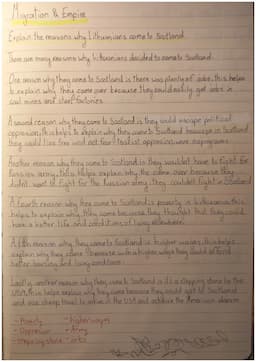 Migration & Empire
Explain the reasons why Lithuanians came to Scotland.
There are many reasons why Lithuanians decided to come to Scotland.
One reason why they came to Scotland is there was plenty of jobs, this helps
to explain why they came over because they could easily get jobs in
coal mines and steel factories.
A second reason why they came to Scotland is they could escape political
oppression, this helps to explain why they came to Scotland because in Scotland
they could live free and not fear Tsarist oppression were
Another reason why they came to Scotland is they wouldn't have to fight for
Russian army, this helps explain why the came over because they
didn't want to fight for the Russian army they couldn't fight in Scotland
A fourth reason why they came to Scotland is poverty in Lithuania this
helps to explain why they came because they thought that they could
have a better life and conditions of living elsewhere.
A fifth reason why they came to Scotland is higher wages, this helps
explain why they came because with a higher wage they could afford
better housing and living conditions.
Lastly another reason why they came to Scotland is it's a stepping stone to the
USA, this helps explain why they came because they could get to Scotland
and use cheap travel to arrive in the USA and
- Poverty - higher wages
- Oppression - Army
- Stepping stone - Jobs